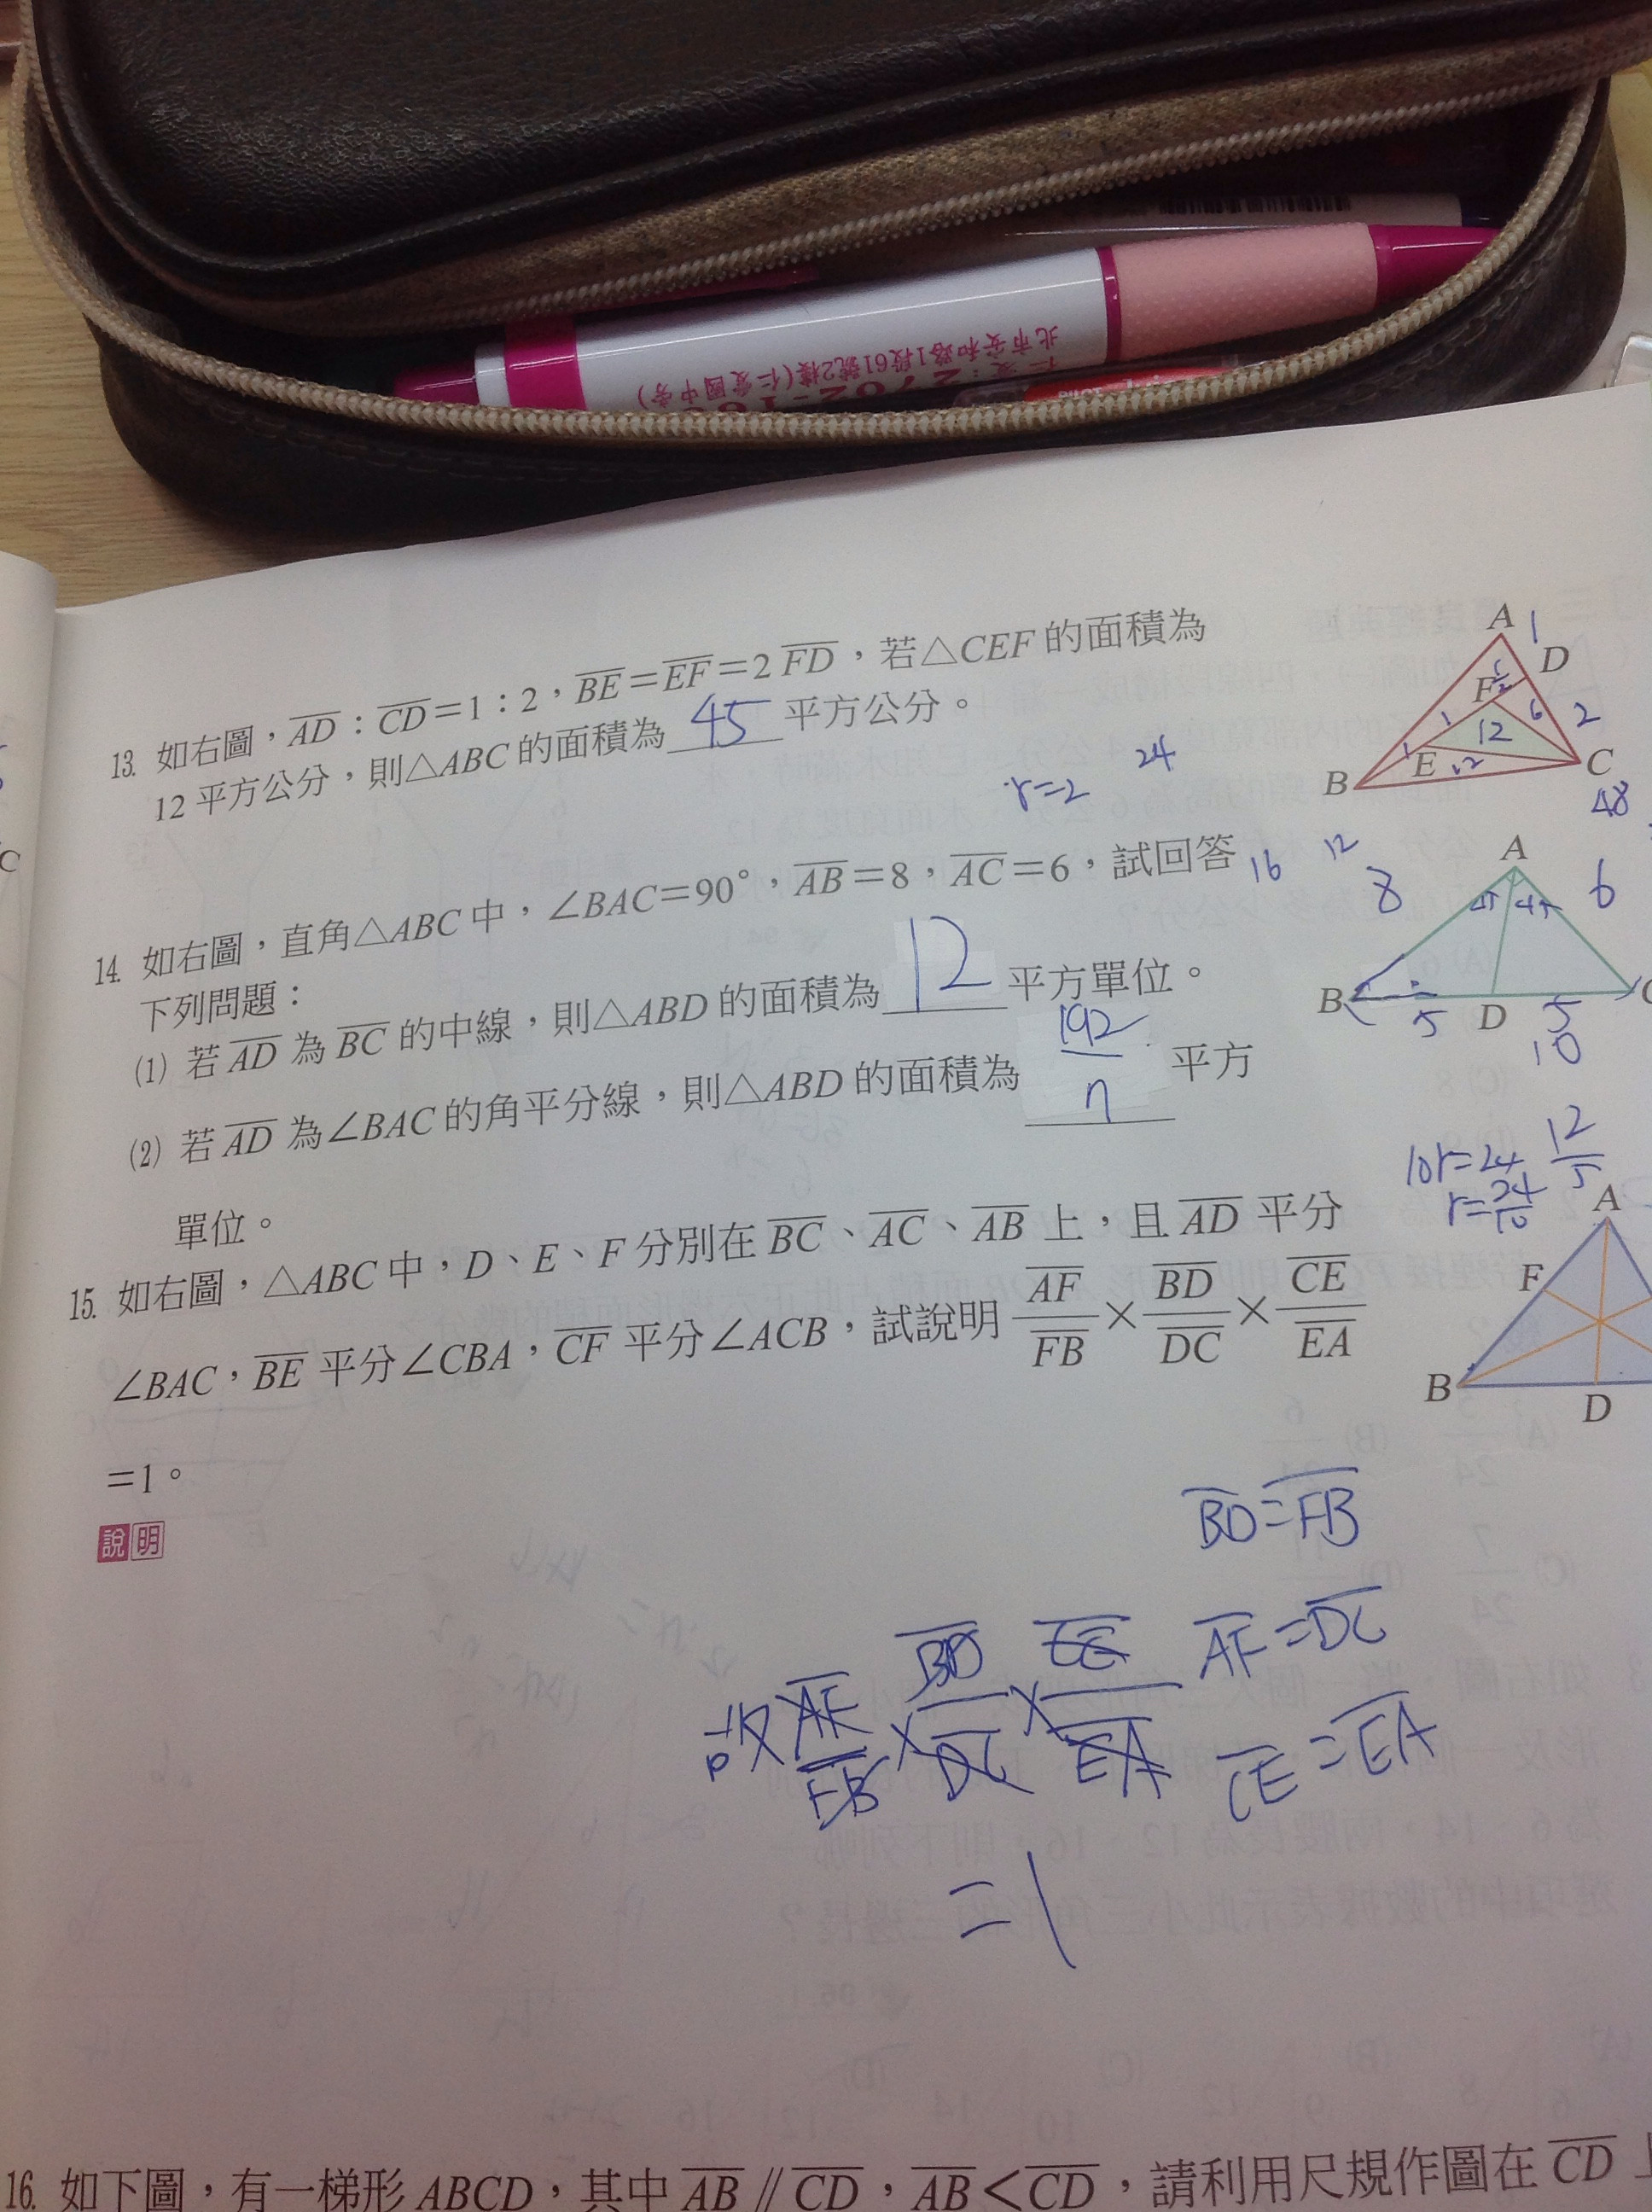 北市安和路1段61號2樓(仁愛國中旁)
13. 如右圖，AD：CD=1：2，BE=EF=2FD，若△CEF的面積為
12平方公分，則△ABC的面積為 45 平方公分。
A 1
D
F
1
6
2
12
1
E
12
B
C
48
r=2
24
14. 如右圖，直角△ABC中，∠BAC=90°，AB=8，AC=6，試回答
下列問題：
16
12
(1) 若AD為BC的中線，則△ABD的面積為 12 平方單位。
(2) 若AD為∠BAC的角平分線，則△ABD的面積為 192/7 平方
單位。
A
8
6
45
45
B
D
5
5
10
10r=24
r=24/10
12/5
15. 如右圖，△ABC中，D、E、F分別在BC、AC、AB上，且AD平分
∠BAC，BE平分∠CBA，CF平分∠ACB，試說明 AF/FB × BD/DC × CE/EA
=1。
A
F
B
D
說明
BD=FB
AF=DC
CE=EA
故 AF/FB × BD/DC × CE/EA
=1
16. 如下圖，有一梯形ABCD，其中AB∥CD，AB<CD，請利用尺規作圖在CD上